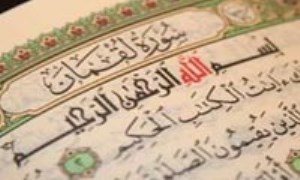 سُورَةُ لُقْمَانَ
بِسْمِ اللَّهِ الرَّحْمَٰنِ الرَّحِيمِ
ءَايَٰتُ الْكِتَٰبِ الْحَكِيمِ
الَّذِينَ يُقِيمُونَ الصَّلَوٰةَ